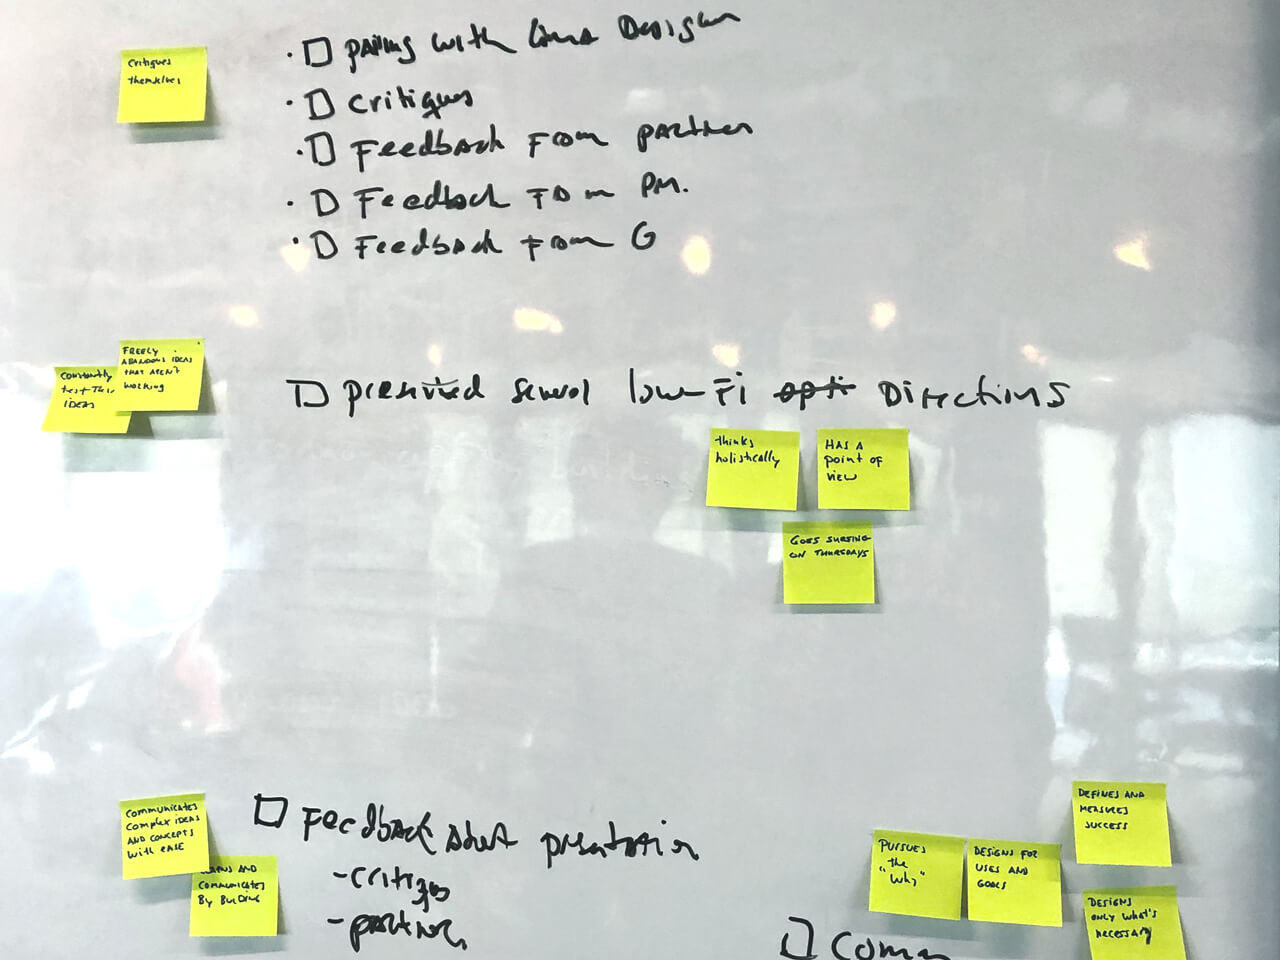 critiques
themselves
· □ pairing with
· □ critiques
· □ Feedback From partner
· □ Feedback From PM.
· □ Feedback from G
constantly
test
IDEAS
FREELY
ABANDONS IDEAS
THAT AREN'T
working
□ presented several low-Fi opti Directions
thinks
holistically
HAS A
point of
view
GOES SURFING
ON THURSDAYS
communicates
complex IDEAS
AND CONCEPTS
with EASE
AND
communicates
By BUILDING
□ Feedback about presentation
- critiques
- partner
PURSUES
"the
Why"
DESIGNS FOR
USES AND
GOALS
DEFINES AND
MEASURES
SUCCESS
DESIGNS
only what's
necessary
□ Comm